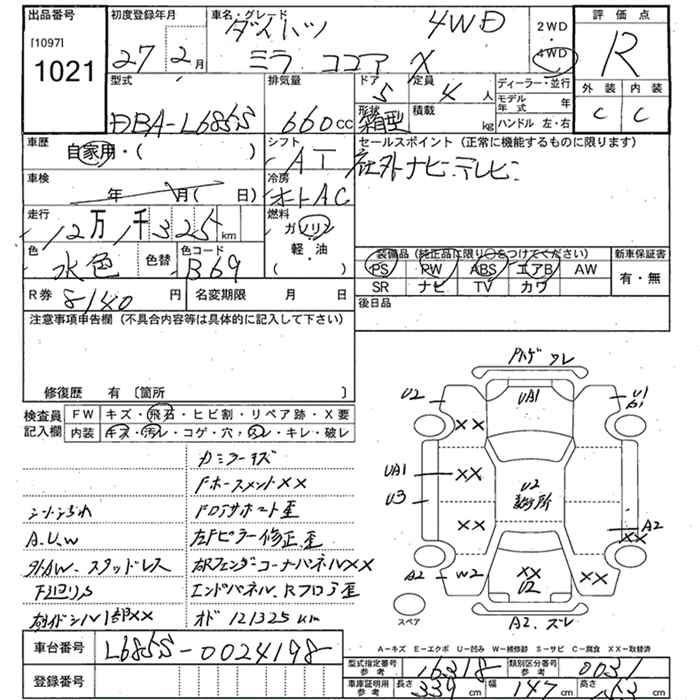 出品番号
[1097]
1021
初度登録年月
27年2月
車名・グレード
ダイハツ 4WD
ミラ ココア X
2WD
・
4WD
評価点
R
外装 内装
C C
型式
DBA-L686S
排気量
660cc
ドア
5
定員
4人
形状
箱型
積載
kg
ディーラー・並行
モデル年式 年
ハンドル 左・右
車歴
自家用・( )
シフト
AT
セールスポイント(正常に機能するものに限ります)
社外ナビ テレビ
車検
年 月( 日)
冷房
オートAC
走行
12万1千325km
燃料
ガソリン
軽・油
( )
色
水色
色替
色コード
B69
装備品(純正品に限り○をつけてください)
PS PW ABS エアB AW
SR ナビ TV カワ
新車保証書
有・無
R券
8140円
名変期限 月 日
後日品
注意事項申告欄(不具合内容等は具体的に記入して下さい)
修復歴 有〔箇所 〕
検査員記入欄
FW キズ・飛石・ヒビ割・リペア跡・X要
内装 キズ・汚レ・コゲ・穴・スレ・キレ・破レ
A.U.W
外AW.スタッドレス
Fホースメント××
FロアサポートE歪
左Fピラー修正、歪
右RフェンダコーナーパネルXX
エンドパネル、Rフロア歪
オド 121325km
U2
UA1
U1
××
UA1
××
U3
U2
××
A2
××
A2
W2
××
U2
××
スペア
A2.ズレ
A-キズ E-エクボ U-凹み W-補修跡 S-サビ C-腐食 XX-取替済
車台番号
L686S-0024198
登録番号
型式指定番号
参考
16318
類別区分番号
参考
0031
車庫証明用
参考
長さ 339cm
幅 147cm
高さ 163cm